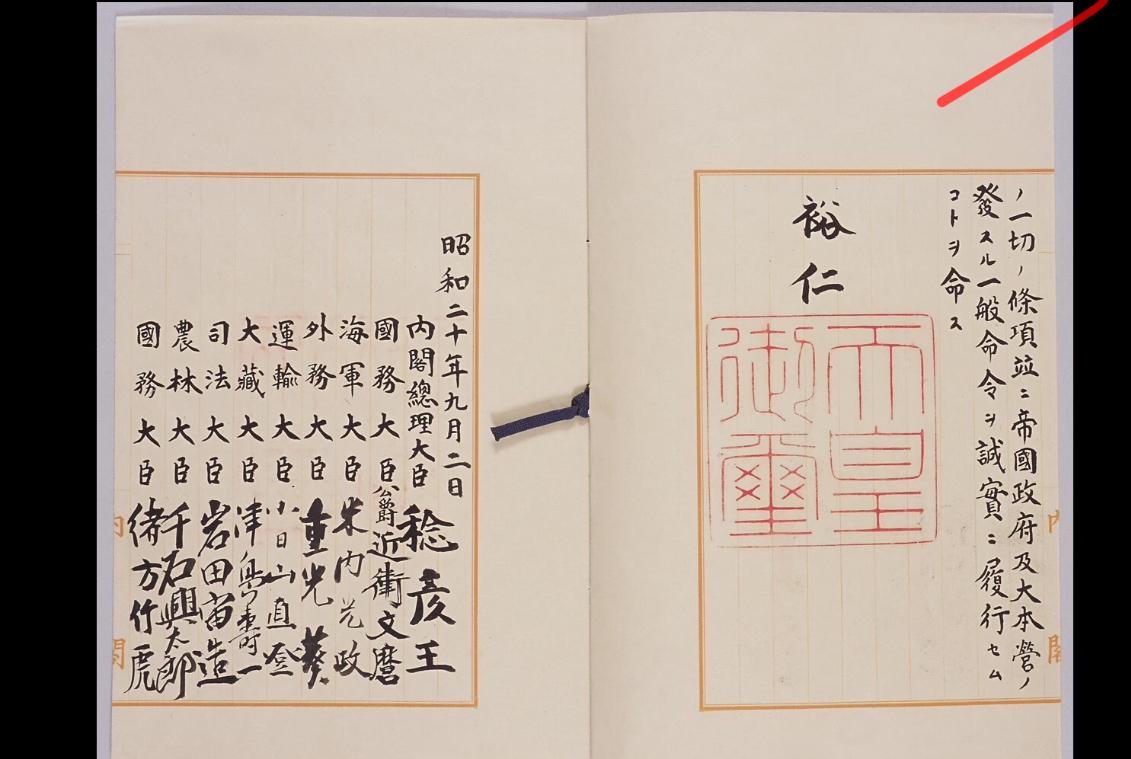 ノ一切ノ條項竝ニ帝國政府及大本營ノ
發スル一般命令ヲ誠實ニ履行セム
コトヲ命ス
裕仁
天皇
御璽
昭和二十年九月二日
内閣總理大臣 稔彦王
國務大臣 公爵近衞文麿
海軍大臣 米内光政
外務大臣 重光葵
運輸大臣 小日山直登
大藏大臣 津島壽一
司法大臣 岩田宙造
農林大臣 千石興太郎
國務大臣 緒方竹虎
内閣
内閣